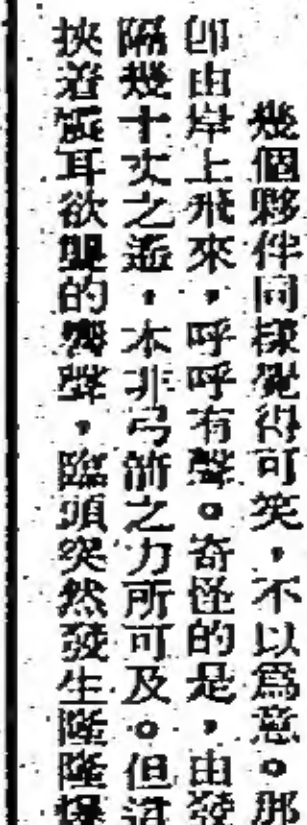 幾個夥伴同樣覺得可笑，不以爲意。那
卽由岸上飛來，呼呼有聲。奇怪的是，由發
隔幾十丈之遙，本非弓箭之力所可及。但這
挾着震耳欲聾的響聲，臨頭突然發生隆隆爆